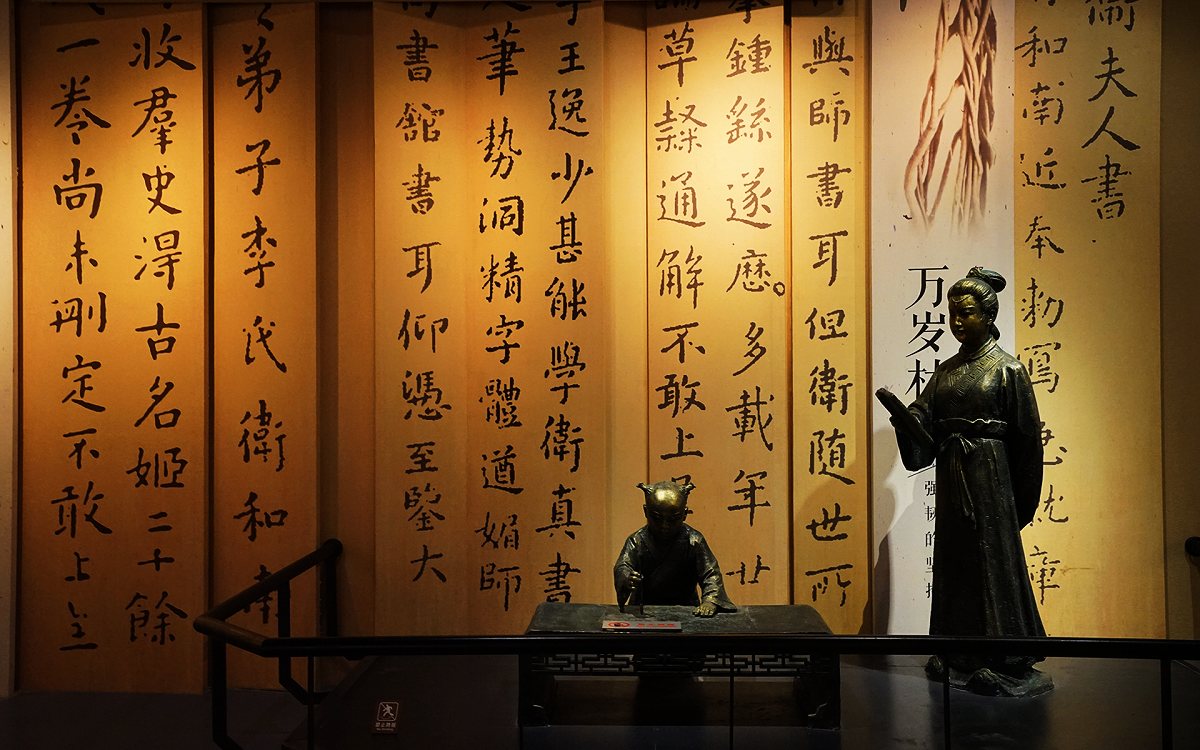 衛夫人書
和南近奉勅寫急就
万岁
强韧的坚持
與師書耳但衛随世所
摹鍾繇遂歷多載年廿
草隸通解不敢上
王逸少甚能學衛真書
筆勢洞精字體遒媚師
書館書耳仰憑至鑒大
弟子李氏衛和南
收羣史得古名姬二十餘
一卷尚未刪定不敢上